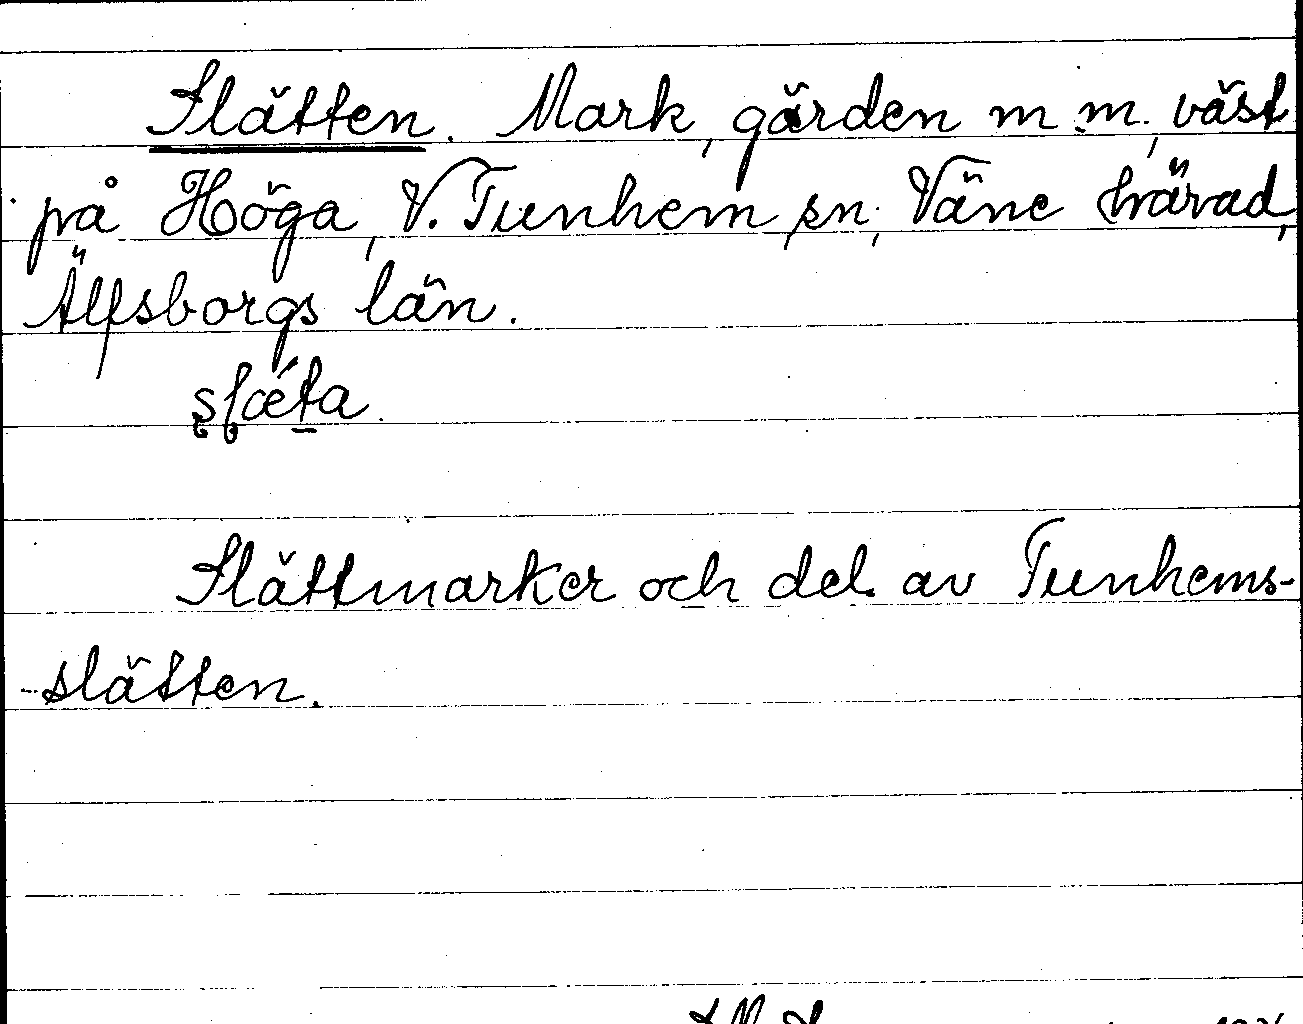 Slätten. Mark, gärden m.m., väst
på Höga, V. Tunhem sn, Väne härad,
Älfsborgs län.
slǽta.
Slättmarker och del av Tunhems-
slätten.